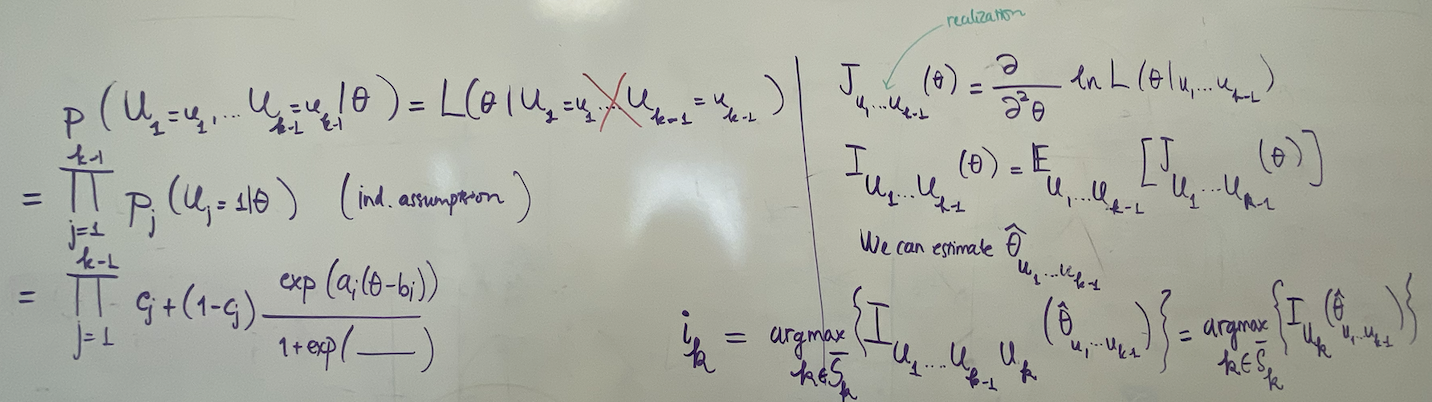 p(U₁=u₁,...U_{k-1}=u_{k-1}|θ) = L(θ|U₁=u₁...U_{k-1}=u_{k-1})
= ∏_{j=1}^{k-1} p_j(U_j=1|θ) (ind. assumption)
= ∏_{j=1}^{k-1} c_j+(1-c_j) exp(a_j(θ-b_j)) / 1+exp(___)
realization
J_{u₁...u_{k-1}}(θ) = ∂/∂²θ ln L(θ|u₁...u_{k-1})
I_{U₁...U_{k-1}}(θ) = E_{U₁...U_{k-1}}[J_{U₁...U_{k-1}}(θ)]
We can estimate θ̂_{u₁...u_{k-1}}
i_k = argmax_{k∈S̄_k}{I_{U₁...U_{k-1}U_k}(θ̂_{u₁...u_{k-1}})} = argmax_{k∈S̄_k}{I_{U_k}(θ̂_{u₁...u_{k-1}})}